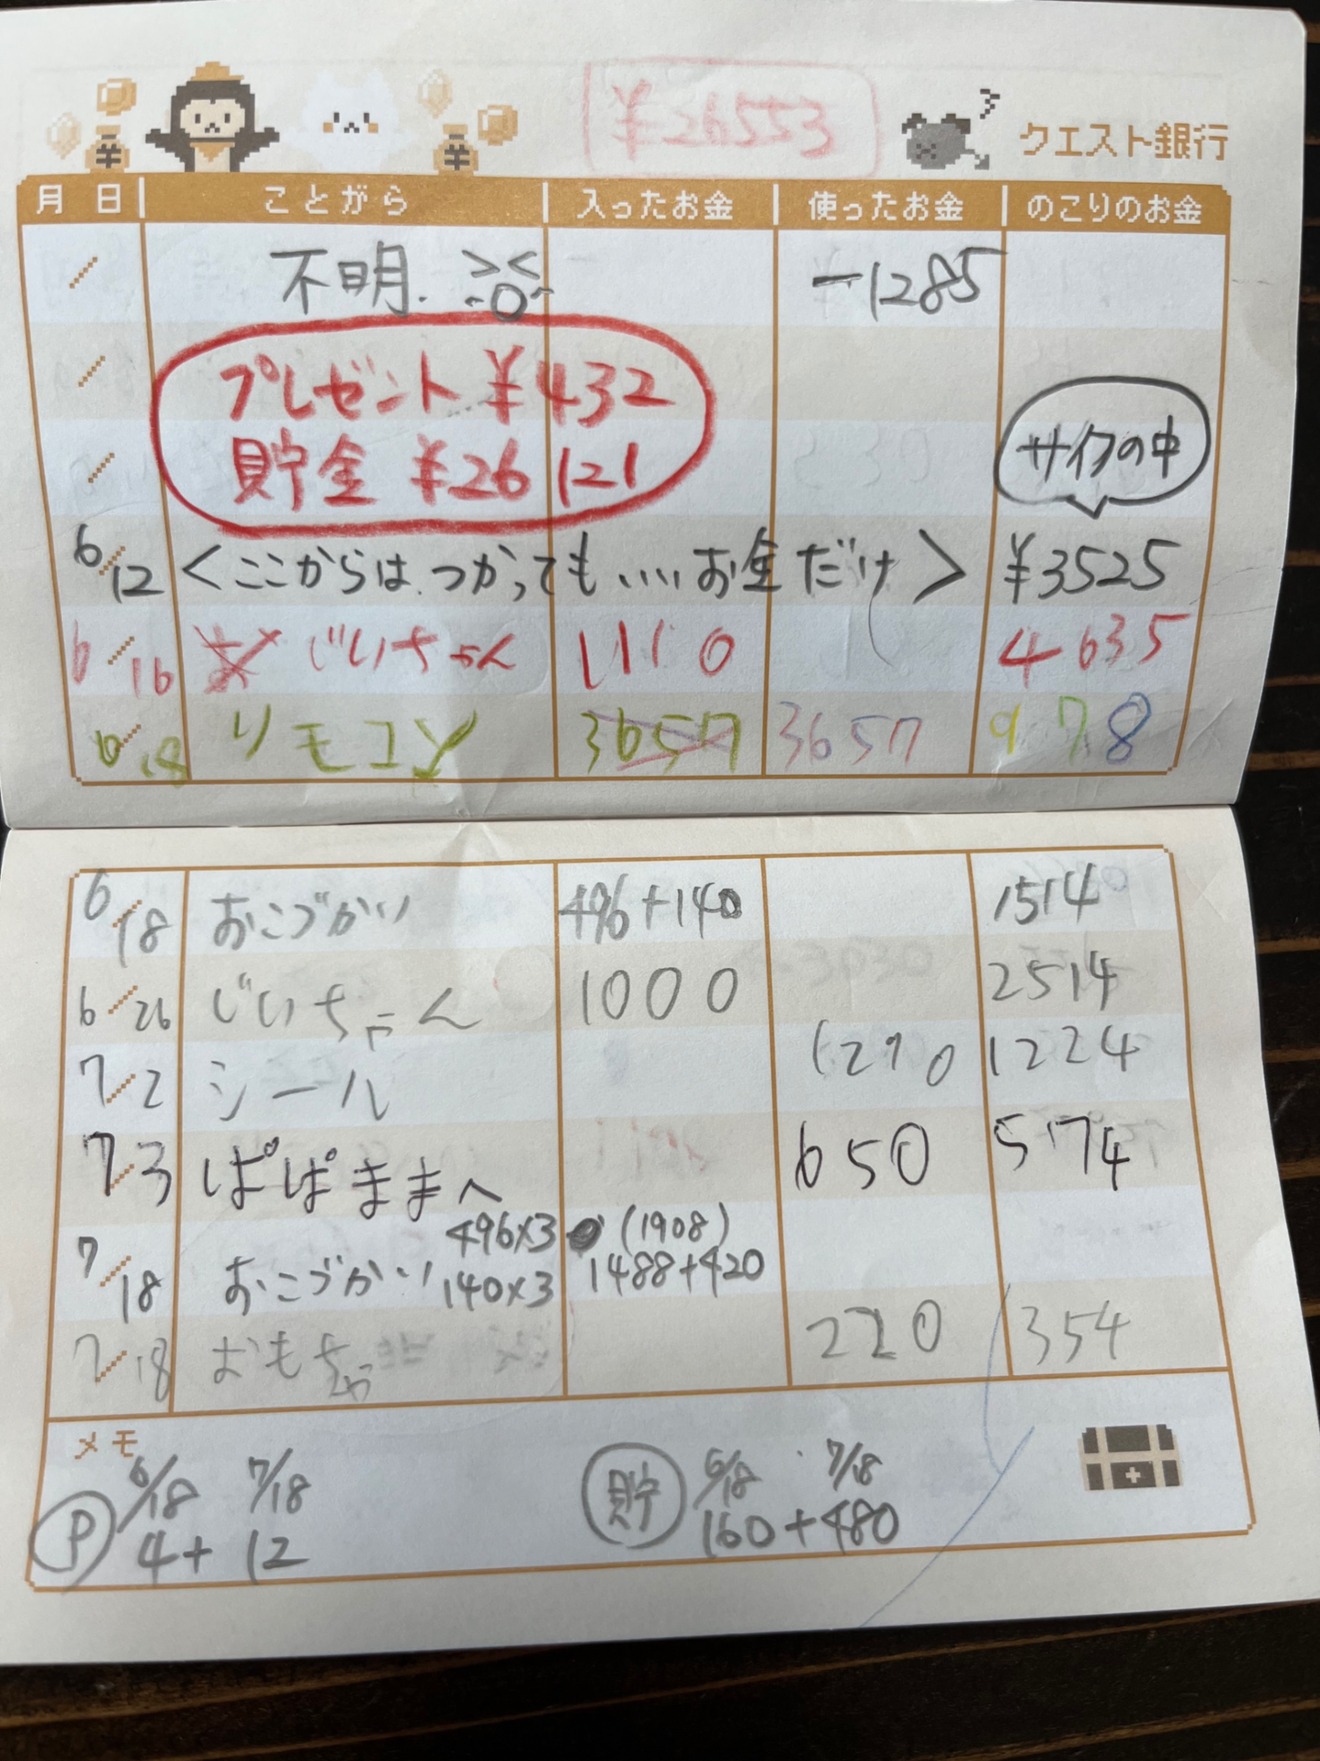 ¥26553
クエスト銀行
月 日 ことがら 入ったお金 使ったお金 のこりのお金
/ 不明. -1285
/ プレゼント ¥432
/ 貯金 ¥26121
サイフの中
6/12 <ここからは つかっても いいお金だけ> ¥3525
6/16 じいちゃん 1110 4635
6/18 リモコン 3657 3657 978
6/18 おこづかい 496+140 1514
6/26 じいちゃん 1000 2514
7/2 シール 1290 1224
7/3 ぱぱままへ 650 574
496×3 (1908)
7/18 おこづかい 140×3 1488+420
7/18 おもちゃ 220 354
メモ
6/18 7/18 6/18 7/18
P 4+ 12 貯 160+480